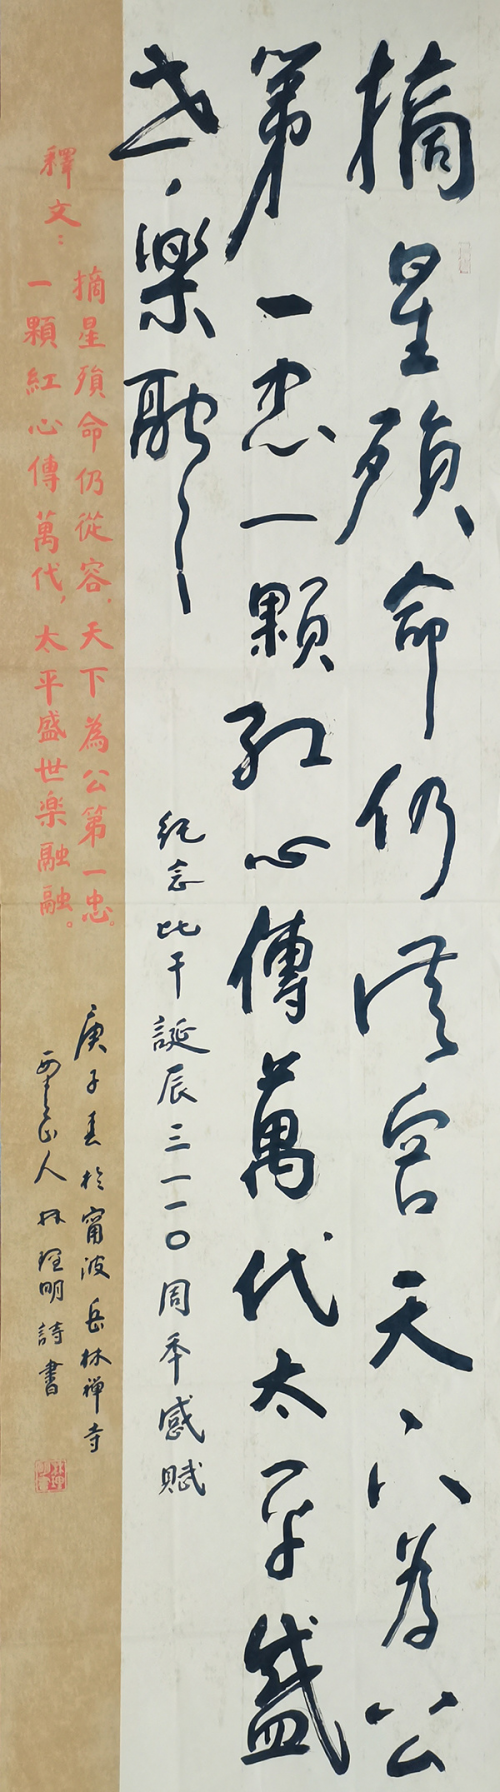 摘星殞命仍從容天下為公
第一忠一顆紅心傳萬代太平盛
世樂融融
紀念比干誕辰三一一〇周年感賦
釋文：
摘星殞命仍從容，天下為公第一忠。
一顆紅心傳萬代，太平盛世樂融融。
庚子春於甯波岳林禅寺
人林理明詩書